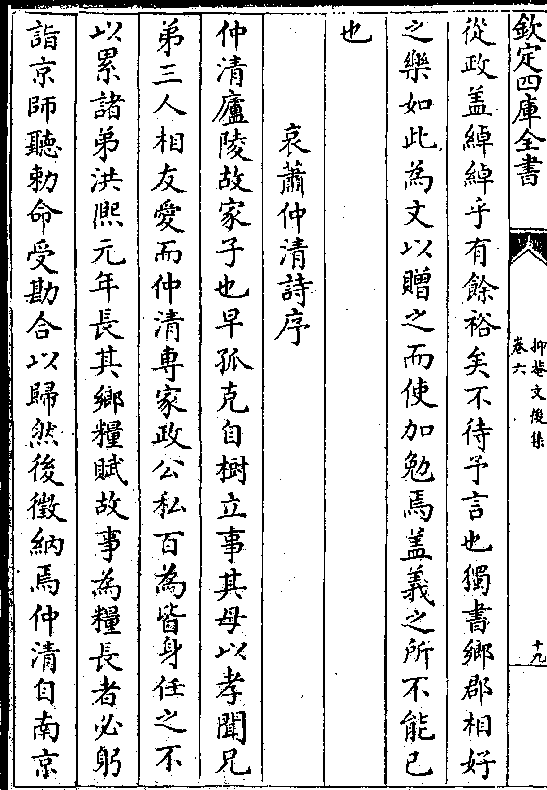 欽定四庫全書
抑菴文後集
卷六
十九
從政盖綽綽乎有餘裕矣不待予言也獨書鄉郡相好
之樂如此為文以贈之而使加勉焉盖義之所不能已
也
哀蕭仲清詩序
仲清廬陵故家子也早孤克自樹立事其母以孝聞兄
弟三人相友愛而仲清專家政公私百為皆身任之不
以累諸弟洪熙元年長其鄉糧賦故事為糧長者必躬
詣京師聽勅命受勘合以歸然後徵納焉仲清自南京